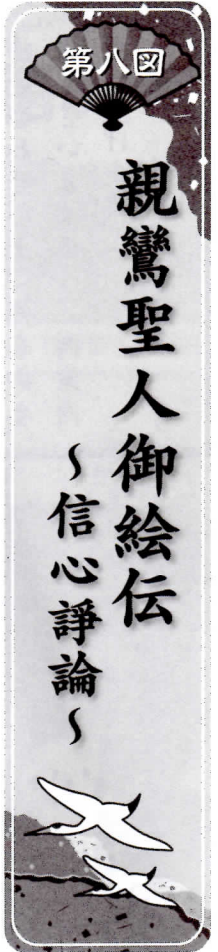 第八図
親鸞聖人御絵伝
～信心諍論～